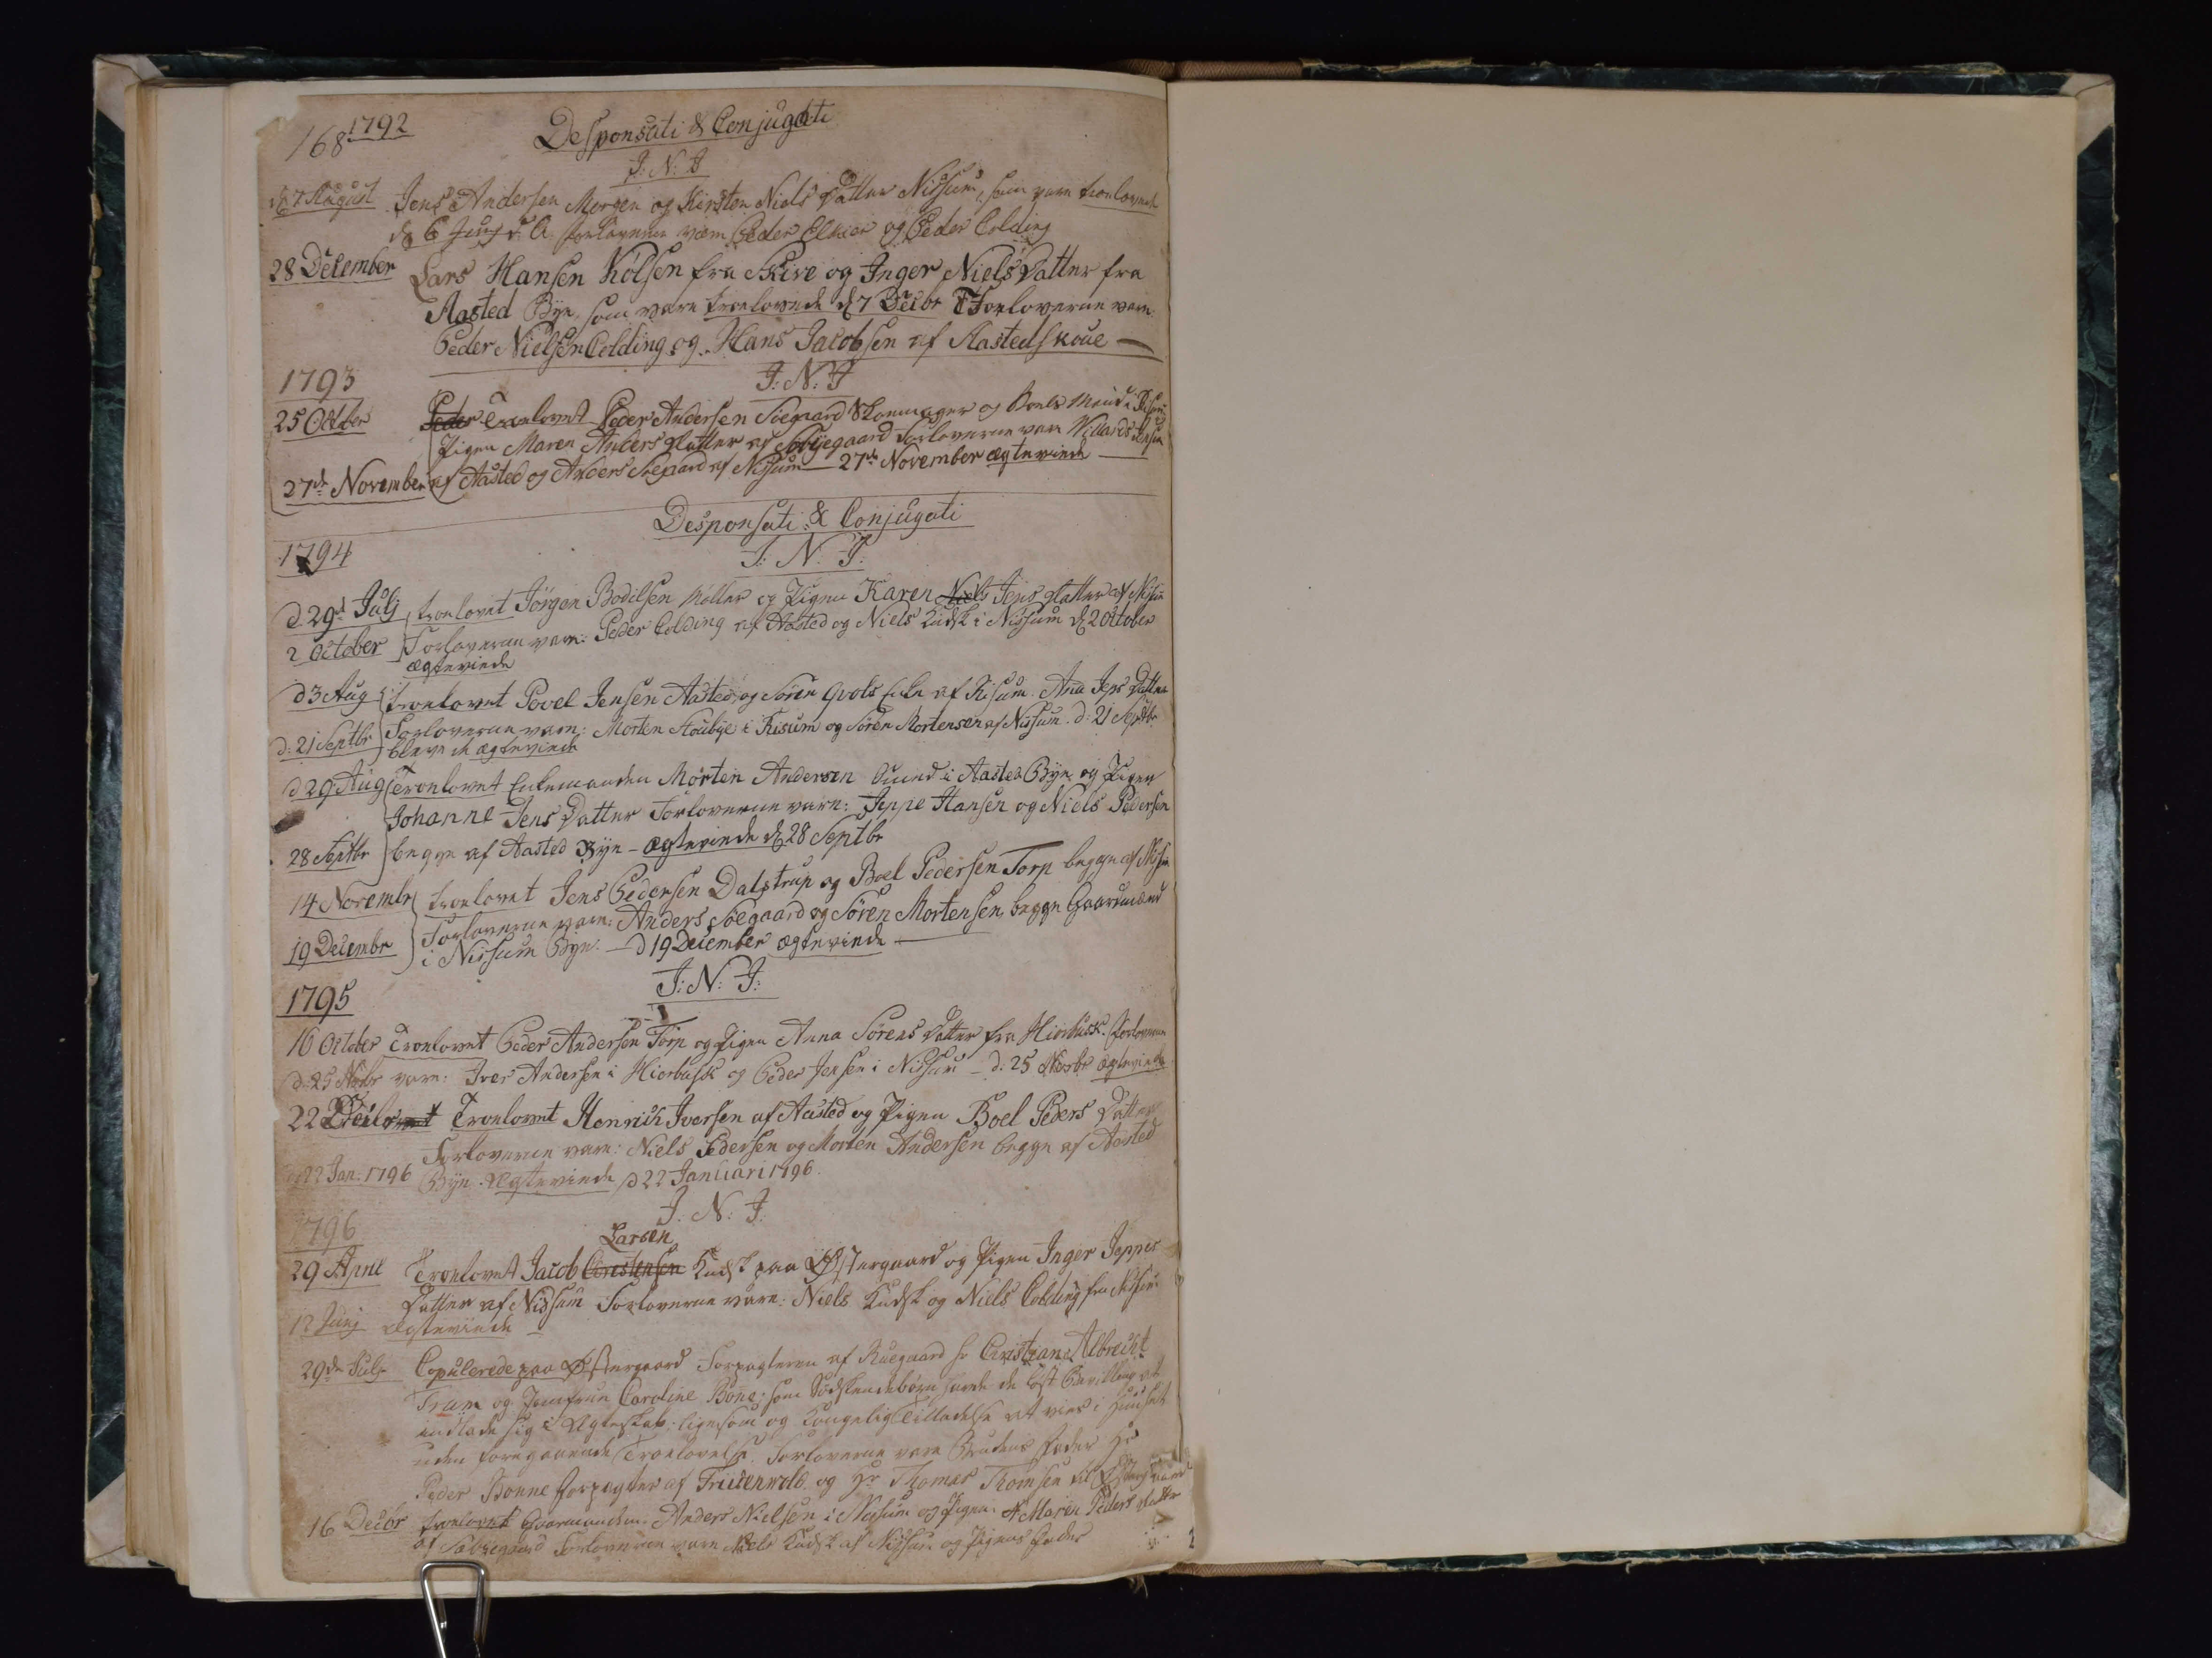 168 1792 Desponsati & Conjugati
J: N: J
d 7 August Jens Andersen Morgen og Kirsten Niels Datter Nissum, som vare troelovede
d 6 Junj s: A. Forloverne vare Peder og Peder Colding
28 December Lars Hansen Kölsen fra Skive og Inger Niels Datter fra
Aasted Bye, som vare troelovede d 7 Decbr Forloverne vare
Peder Nielsen Colding og Hans Jacobsen af Aastedskoue —
1793 J: N: J
25 October Peder Troelovet Peder Andersen Söegaard og
Pigen Maren Anders Datter af Sebyegaard Forloverne vare Jensen
27de November af Aasted og Anders Söegaard af Nissum — 27de November ægteviede —
Desponsati & Conjugati
1794 J: N: J:
d 29de Julj troelovet Jörgen Bodilsen Möller og Pigen Karen Niels Jens Datter af Nissum
2 October Forloverne vare: Peder Colding af Aasted og Niels Kudsk i Nissum d 2 October
ægteviede
d 3 Aug troelovet Povel Jensen Aasted og Sören Qvols Enke af Risum Ana Jens Datter
d: 21 Septbr Forloverne vare: Morten Houbye i Risum og Sören Mortensen af Nissum. d: 21 Septbr
bleve de ægteviede
d 29 Aug Troelovet Enkemanden Morten Andersen i Aasted Bye og Pigen
Johanne Jens Datter Forloverne vare: Jeppe Hansen og Niels Pedersen
28 Septbr begge af Aasted Bye — ægteviede d 28 Septbr
14 Novembr troelovet Jens Pedersen Dalstrup og Boel Pedersen Torp begge af Nissum
Forloverne vare: Anders Söegaard og Sören Mortensen, begge Gaardmænd
19 Decembr i Nissum Bye. — d 19 December ægteviede —
1795 J: N: J:
16 October Troelovet Peder Andersen Torp og Pigen Anna Sörens Datter fra Hiorbusk. Forloverne
d: 25 Novbr vare: Iver Andersen i Hiorbusk og Peder Jensen i Nissum — d: 25 Novbr ægteviede
22 Troelovet Henrich Iversen af Aasted og Pigen Boel Peders Datter
Forloverne vare: Niels Pedersen og Morten Andersen begge af Aasted
d 22 Jan: 1796 Bye. ægteviede d 22 Januari 1796.
J: N: J:
1796
Larsen
29 April Troelovet Jacob Christensen Kudsk paa Östergaard og Pigen Inger Jeppes
Datter af Nissum Forloverne vare: Niels Kudsk og Niels Colding fra Nissum
12 Junj ægteviede —
29de Julj Copulerede paa Östergaard Forpagteren af Ruegaard Hr Christian Albrecht
Tram og Jomfrue Caroline Bone; som Södskendebörn havde de löst Bevilling at
indlade sig i Ægteskab. ligesom og Kongelig Tilladelse at vies i Huuset
uden foregaaende Troelovelse. Forloverne vare Brudens Fader Hr
Peder Bonne Forpagter af Friisenvold og Hr Thomas Thomsen til Östergaard
16 Decbr troelovet Gaarmanden Anders Nielsen i Nissum og Pigen Maren Peders Datter
af Sebyegaard Forloverne vare Niels Kudsk af Nissum og Pigens Fader